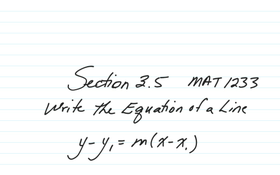 Section 3.5 MAT 1233
Write the Equation of a Line
y - y₁ = m(x - x₁)